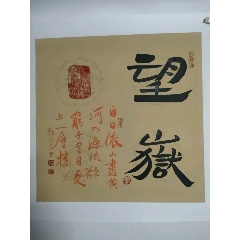 望嶽
白日依山盡黃
河入海流欲
窮千里目更
上一層樓